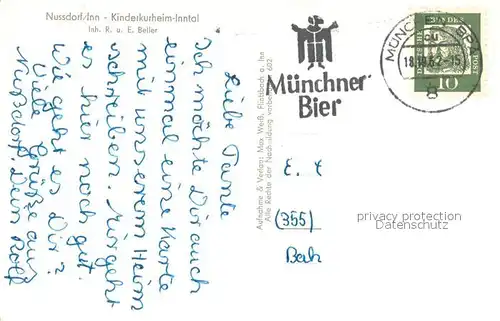 Nussdorf/Inn - Kinderkurheim-Inntal
Inh. R. u. E. Beller
Liebe Tante
Ich möchte Dir auch
einmal eine Karte
mit unserem Heim
schreiben. Mir geht
es hier noch gut.
Wie geht es Dir?
Viele Grüße aus
Nußdorf. Dein Rolf
Aufnahme & Verlag: Max Weiß, Flintsbach a. Inn
Alle Rechte der Nachbildung vorbehalten
602
Münchner
Bier
MÜNCHEN
8
10
(355)
privacy protection
Datenschutz